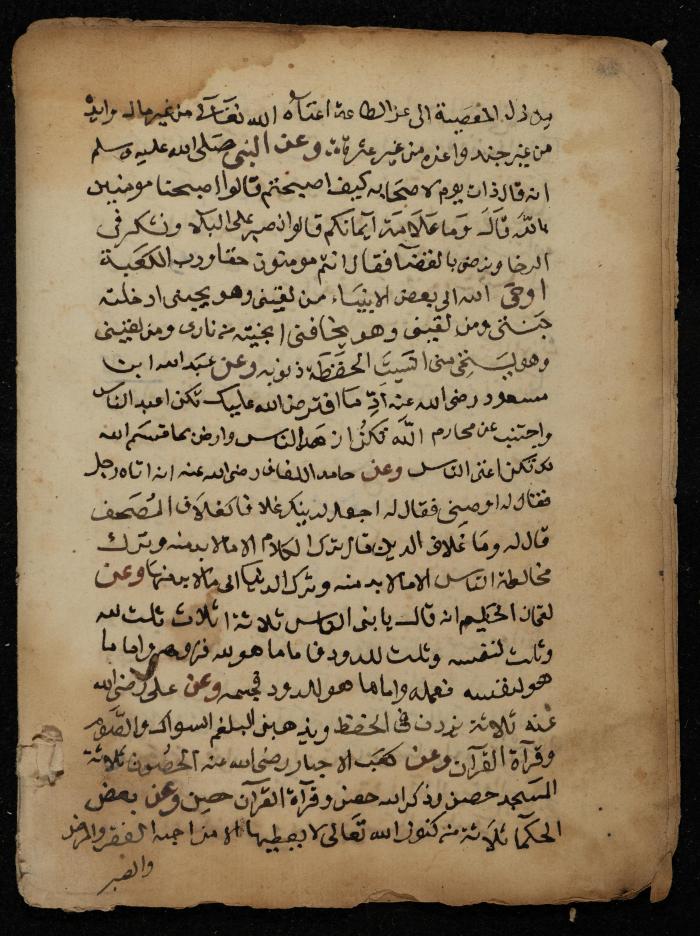 من ذل المعصية الى عز الطاعة اغناه الله تعالى من غير مال وايده
من غير جند واعزه من غير عشيرة وعن النبي صلى الله عليه وسلم
انه قال ذات يوم لاصحابه كيف اصبحتم قالوا اصبحنا مومنين
بالله قال وما علامة ايمانكم قالوا نصبر على البلا ونشكر في
الرخا ونرضى بالقضا فقال انتم مومنون حقا ورب الكعبة
اوحى الله الى بعض الانبياء من لقيني وهو يحبني ادخلته
جنتي ومن لقيني وهو يخافني انجيته من ناري ومن لقيني
وهو يستحي مني انسيت الحفظة ذنوبه وعن عبد الله ابن
مسعود رضي الله عنه ادّ ما افترض الله عليك تكن اعبد الناس
واجتنب عن محارم الله تكن ازهد الناس وارض بما قسم الله
لك تكن اغنى الناس وعن حامد اللفاف رضي الله عنه انه اتاه رجل
فقال له اوصيني فقال له اجعل لدينك غلافا كغلاف المصحف
قال له وما غلاف الدين قال ترك الكلام الا مالا بد منه وترك
مخالطة الناس الا مالا بد منه وترك الدنيا الى مالا بد منها وعن
لقمان الحكيم انه قال يا بني الناس ثلاثة اثلاث ثلث لله
وثلث لنفسه وثلث للدود فاما ما هو لله فروحه واما ما
هو لنفسه فعمله واما ما هو للدود فجسمه وعن علي رضي الله
عنه ثلاثة يزدن في الحفظ ويذهبن البلغم السواك والصوم
وقرآة القرآن وعن كعب الاحبار رضي الله عنه الحصون ثلاثة
المسجد حصن وذكر الله حصن وقرآة القرآن حصن وعن بعض
الحكما ثلاثة من كنوز الله تعالى لا يعطيها الا من احبه الفقر والمرض
والصبر